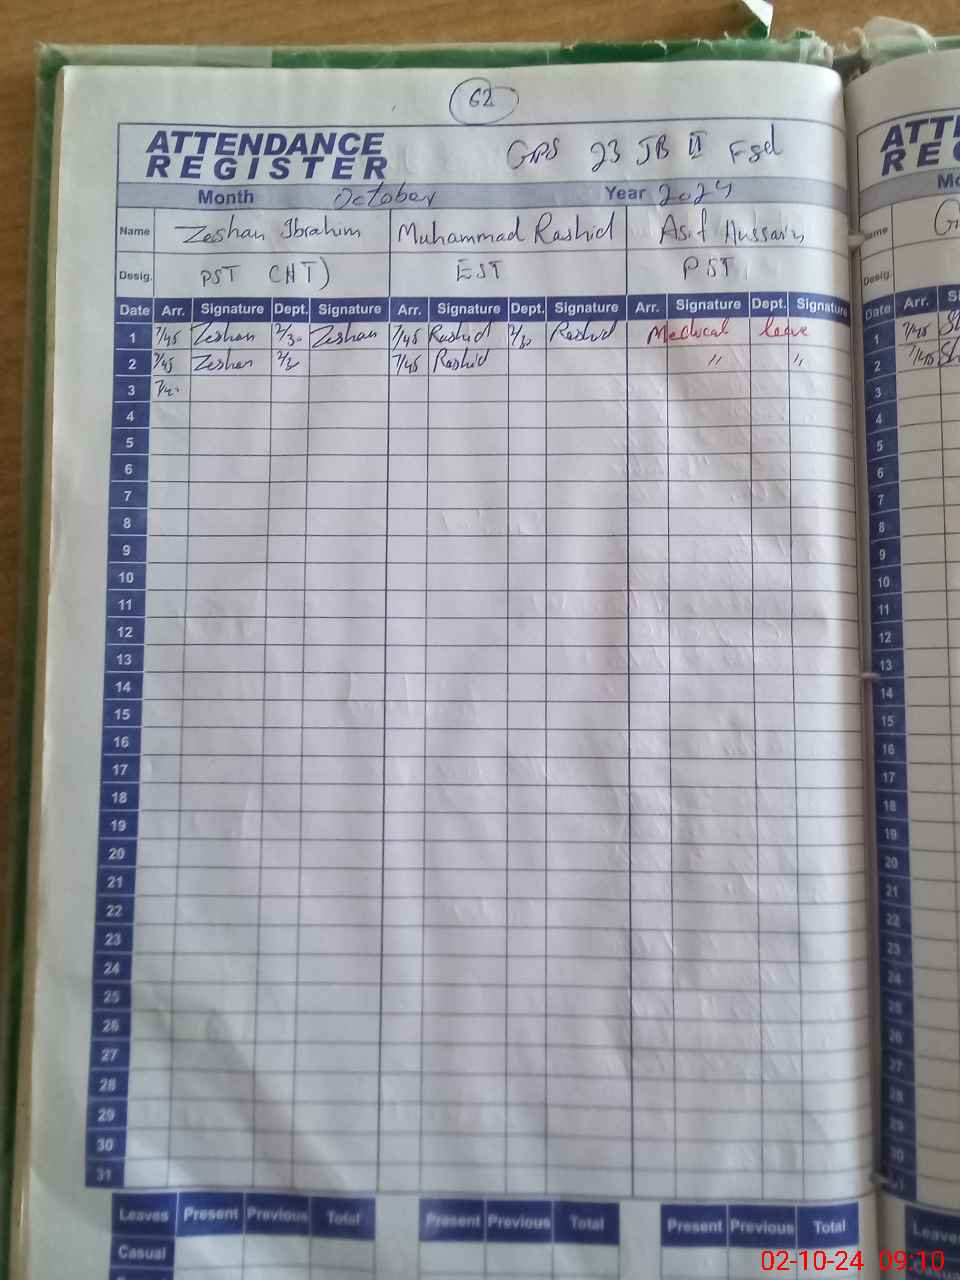 62
ATTENDANCE REGISTER GPS 23 JB II Fsd
Month October Year 2024
Name Zeshan Ibrahim Muhammad Rashid Asif Hussain
Desig. PST (HT) EST PST
Date Arr. Signature Dept. Signature Arr. Signature Dept. Signature Arr. Signature Dept. Signature
1 7/45 Zeshan 2/30 Zeshan 7/45 Rashid 2/30 Rashid Medical leave
2 7/45 Zeshan 7/45 Rashid " "
3
4
5
6
7
8
9
10
11
12
13
14
15
16
17
18
19
20
21
22
23
24
25
26
27
28
29
30
31
Leaves Present Previous Total Present Previous Total Present Previous Total
Casual
Name
Desig.
Date Arr.
1 7/45
2 7/45
3
4
5
6
7
8
9
10
11
12
13
14
15
16
17
18
19
20
21
22
23
24
25
26
27
28
29
30
Leaves
02-10-24 09:10